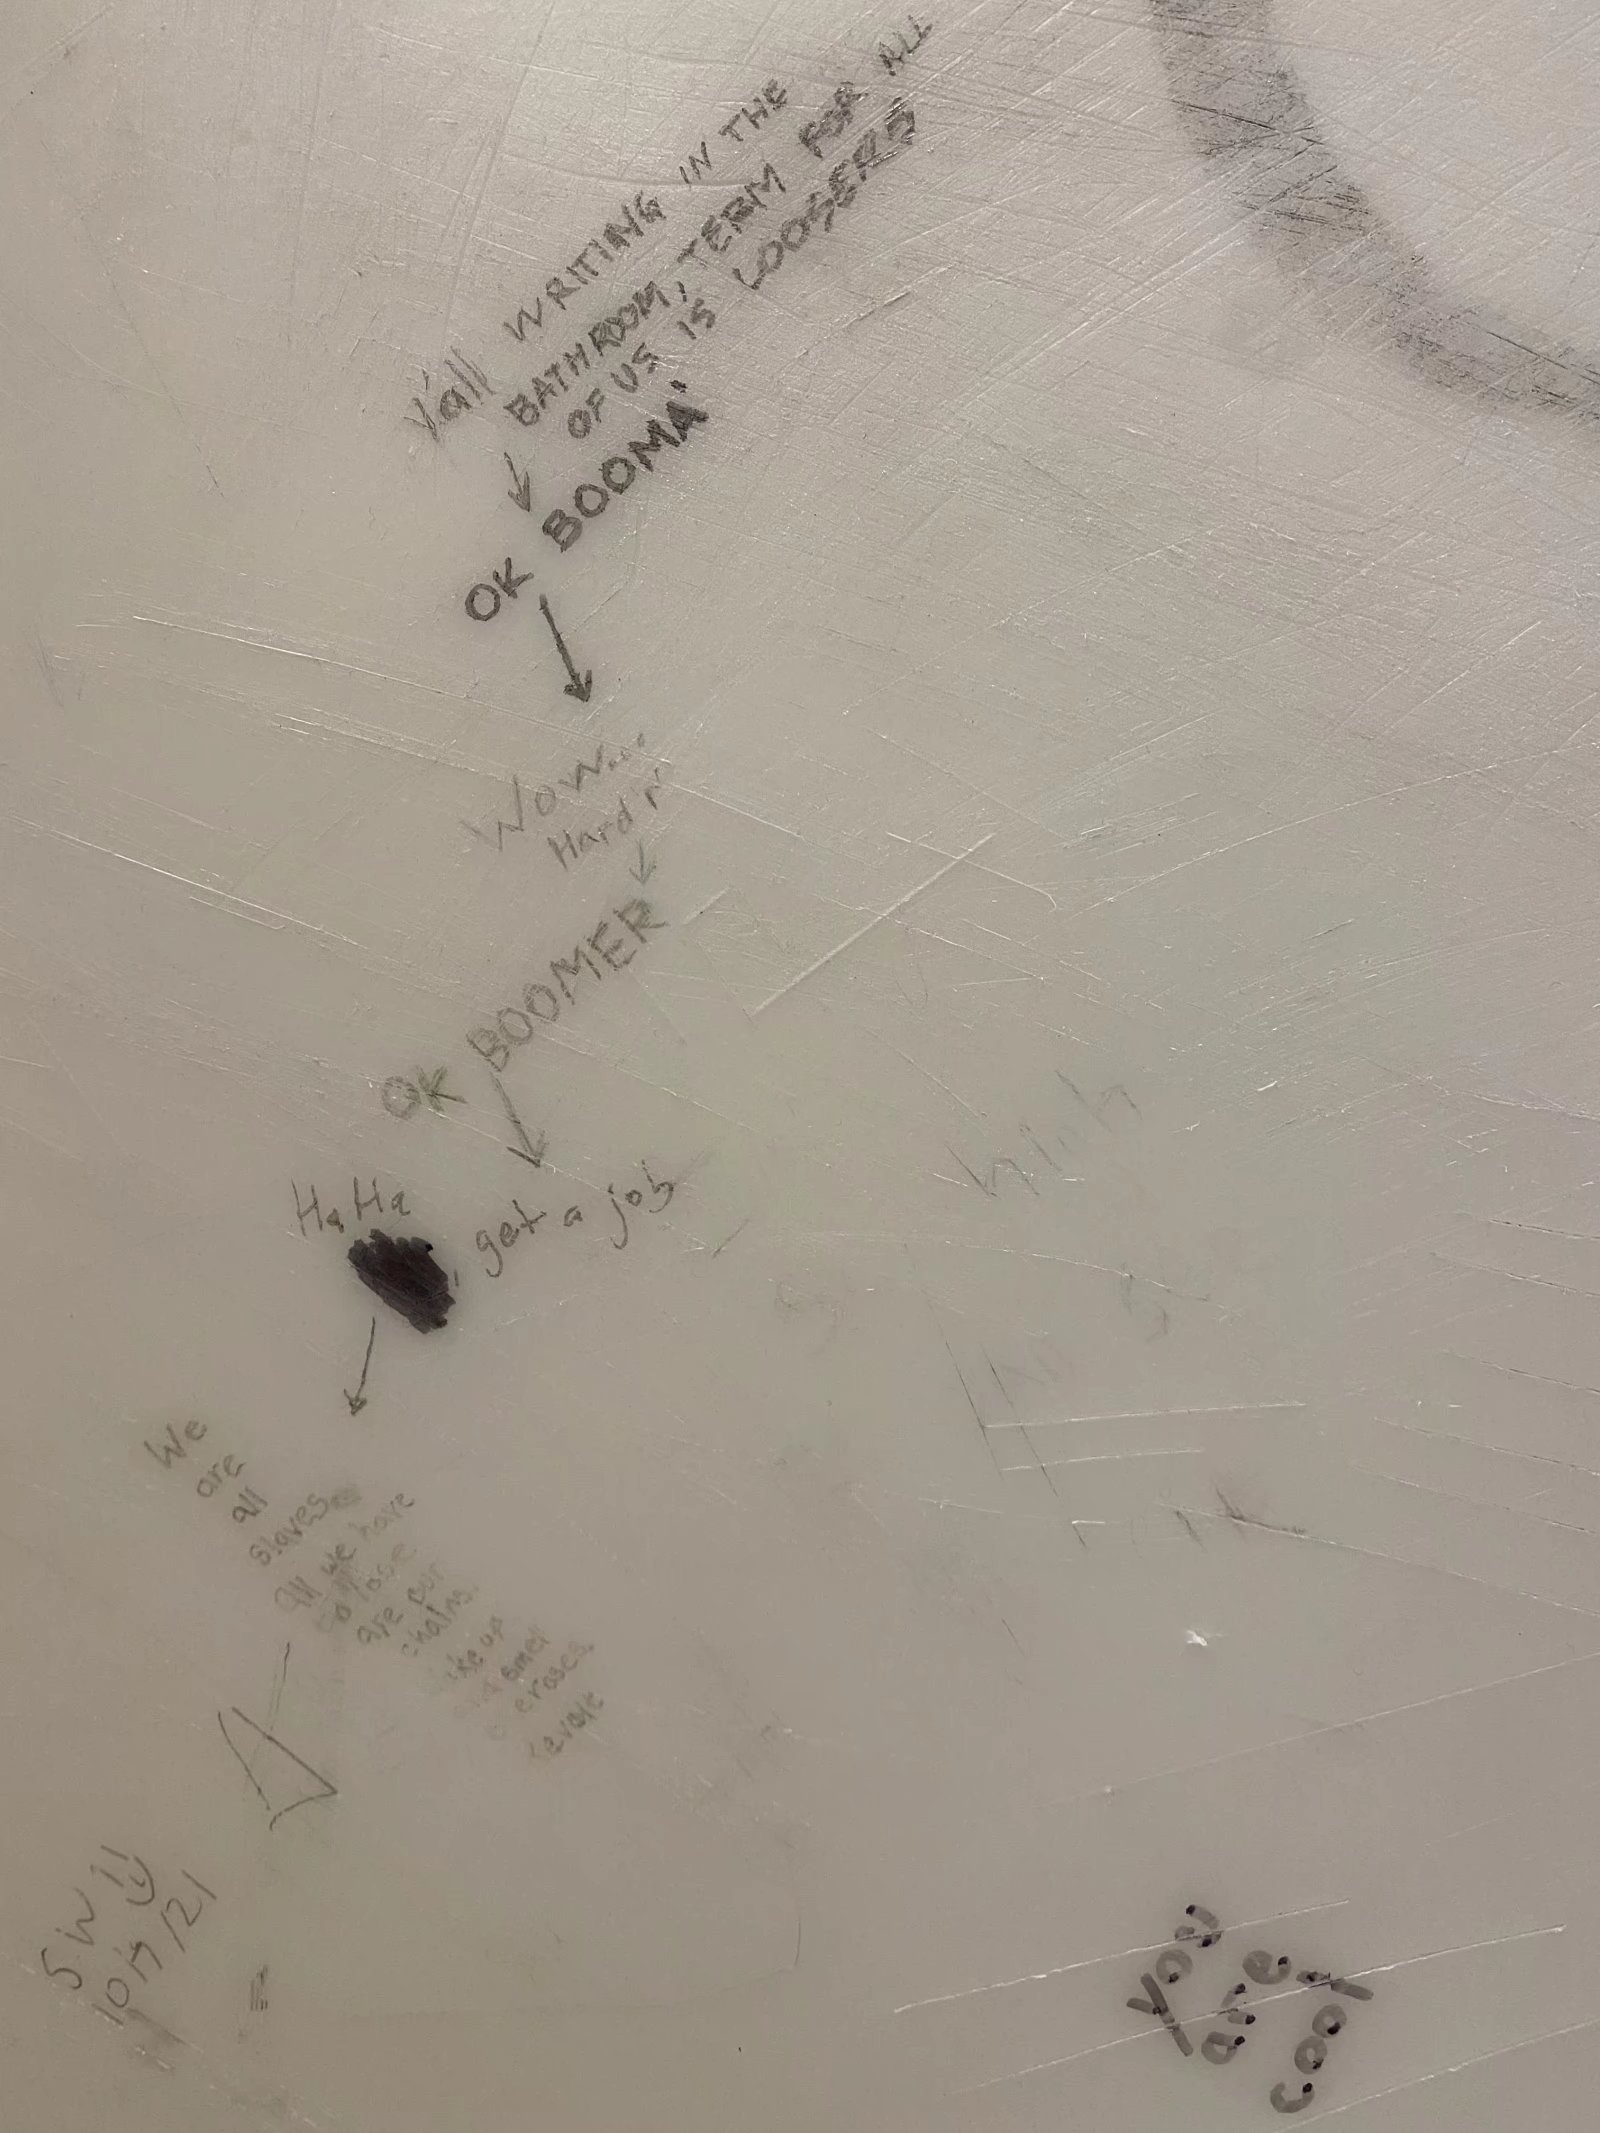 Y'all WRITING IN THE
BATHROOM, TERM FOR ALL
OF US IS LOOSERS
OK BOOMA'
Wow...
Hard 'r'
OK BOOMER
HaHa
get a job
We
are
all
slaves
all we have
to lose
are our
chains.
up
erases
you
are
cool